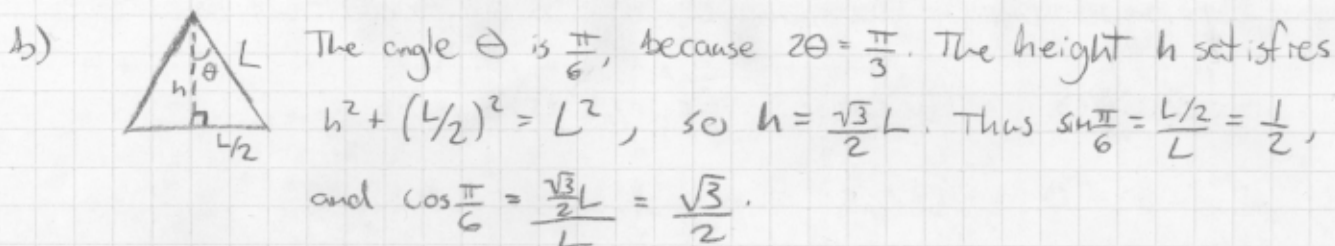 b) The angle θ is π/6, because 2θ = π/3. The height h satisfies
L θ h L/2
h² + (L/2)² = L², so h = √3/2 L. Thus sin π/6 = (L/2)/L = 1/2,
and cos π/6 = (√3/2 L)/L = √3/2.